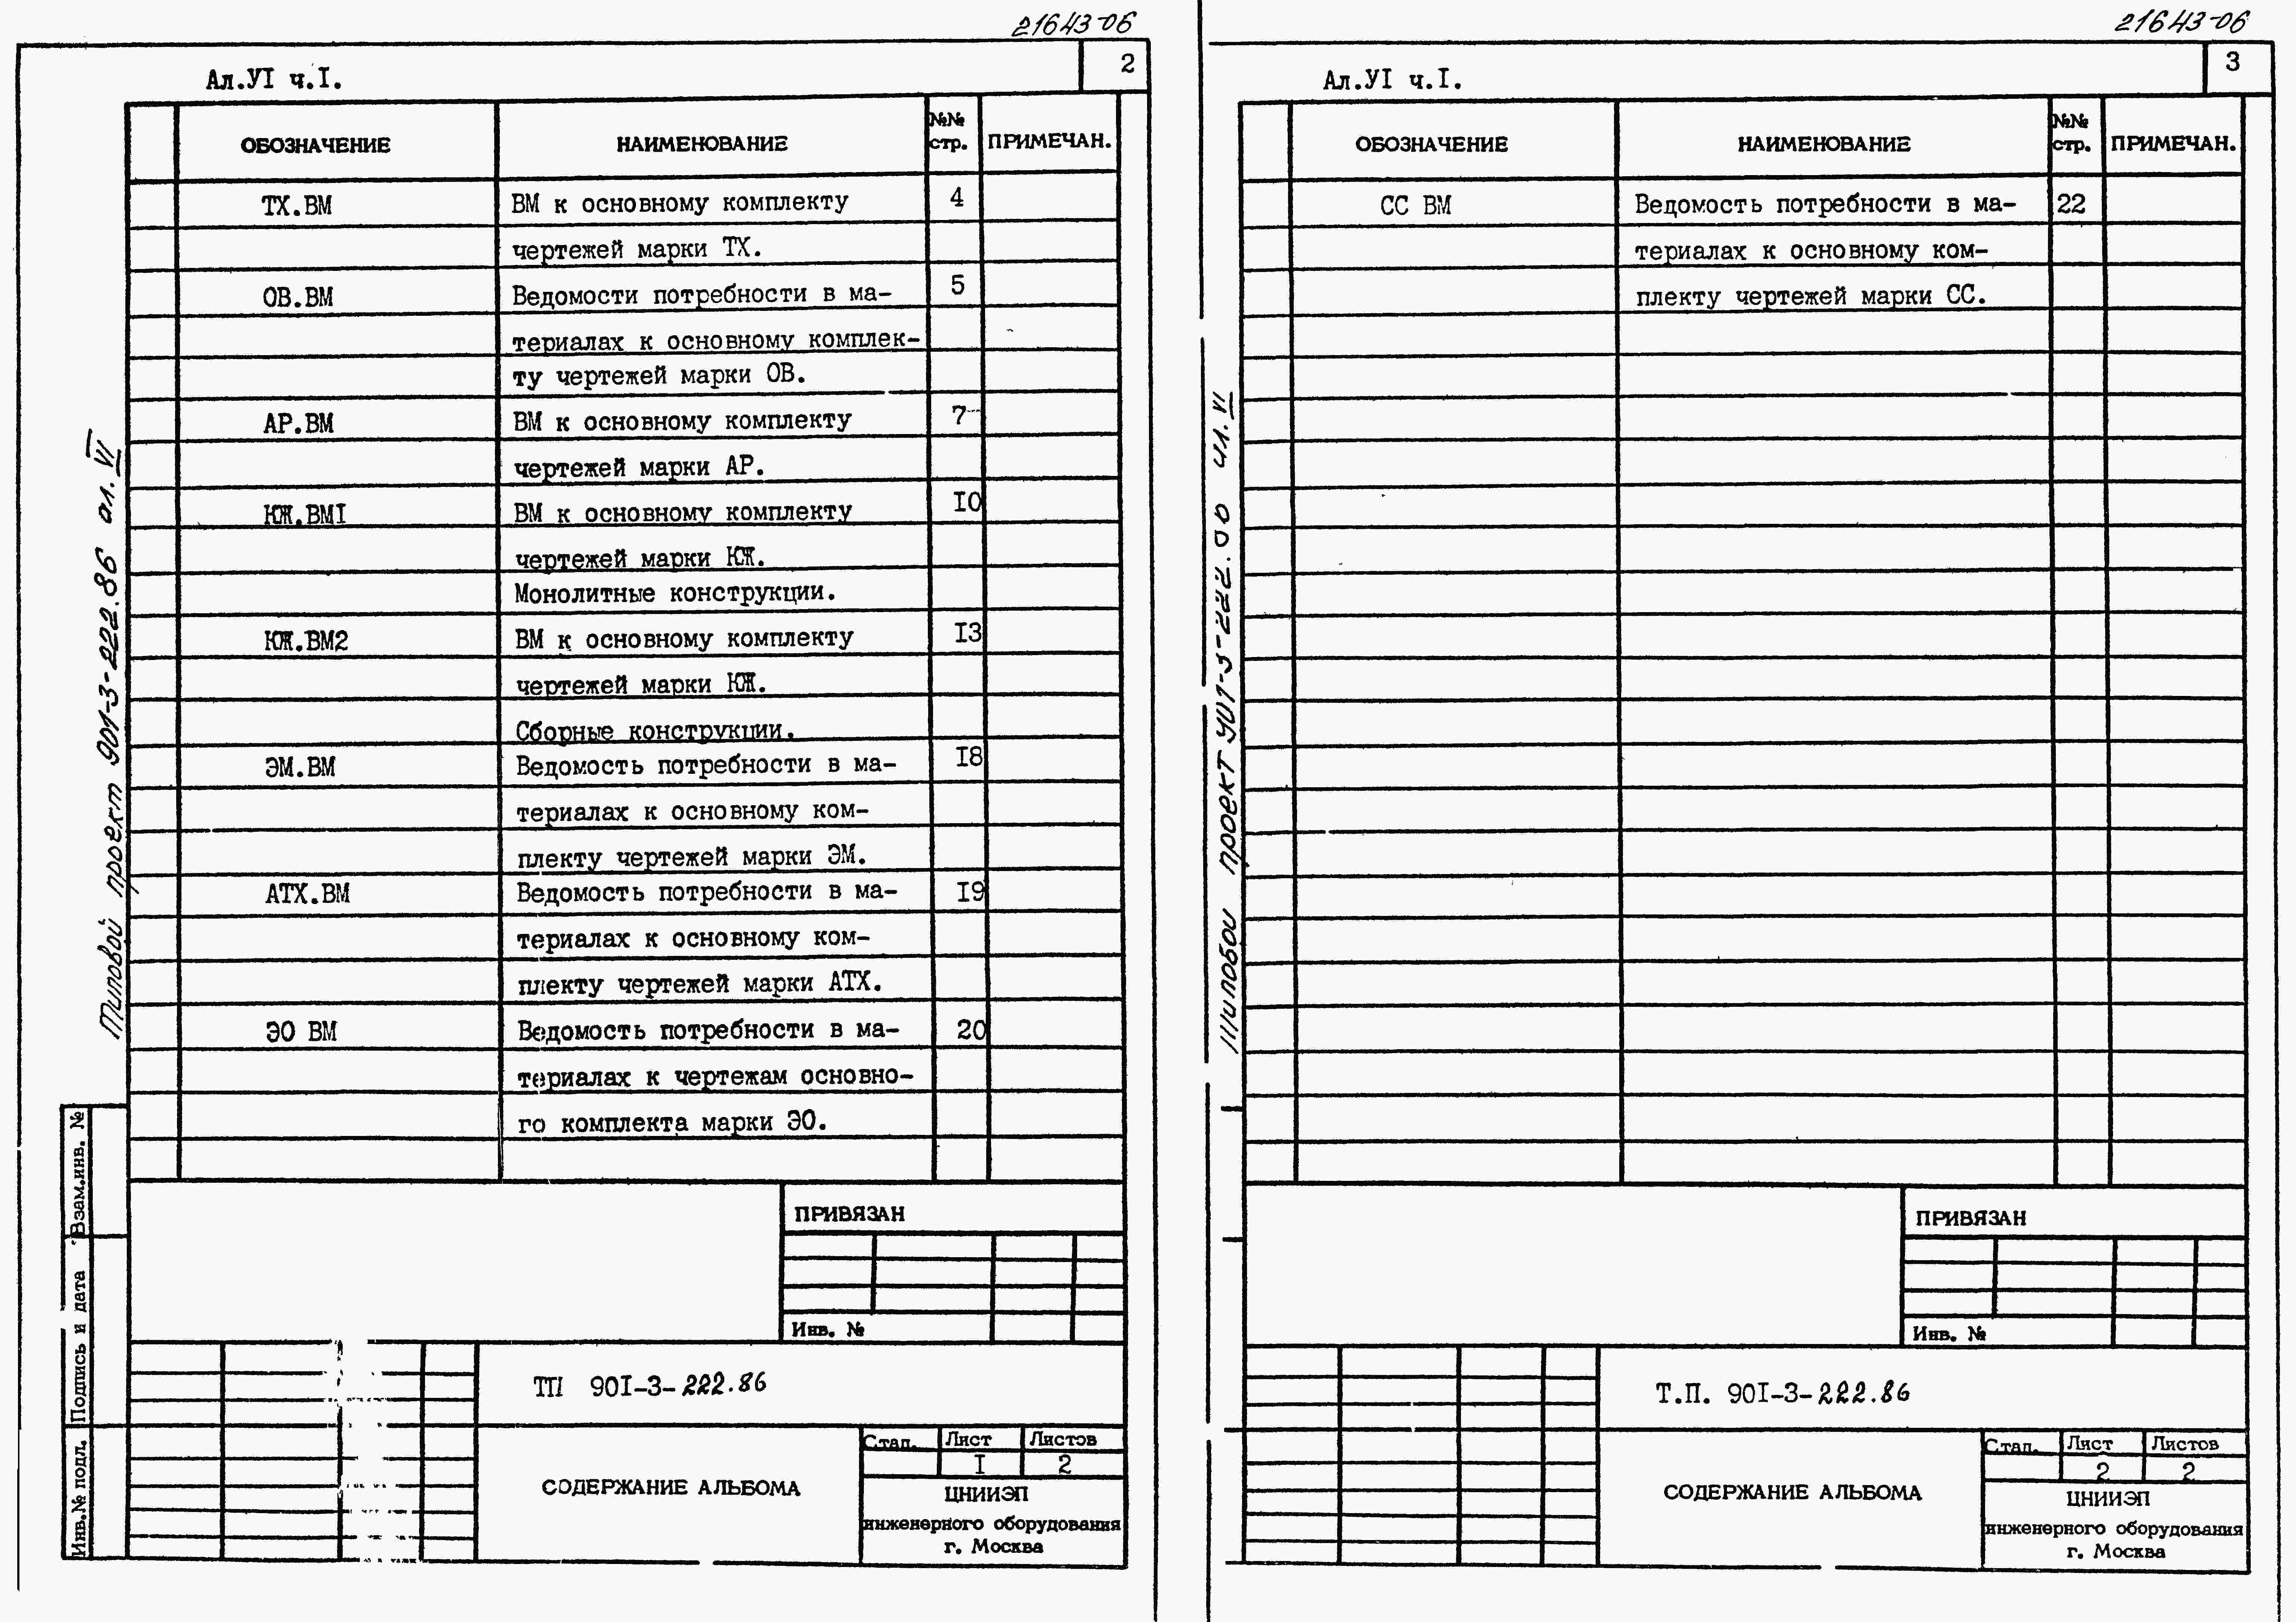 21643-06
2
Ал.УI ч.I.
ОБОЗНАЧЕНИЕ НАИМЕНОВАНИЕ №№ стр. ПРИМЕЧАН.
ТХ.ВМ ВМ к основному комплекту 4
чертежей марки ТХ.
ОВ.ВМ Ведомости потребности в ма- 5
териалах к основному комплек-
ту чертежей марки ОВ.
АР.ВМ ВМ к основному комплекту 7
чертежей марки АР.
КЖ.ВМI ВМ к основному комплекту I0
чертежей марки КЖ.
Монолитные конструкции.
КЖ.ВМ2 ВМ к основному комплекту I3
чертежей марки КЖ.
Сборные конструкции.
ЭМ.ВМ Ведомость потребности в ма- I8
териалах к основному ком-
плекту чертежей марки ЭМ.
АТХ.ВМ Ведомость потребности в ма- I9
териалах к основному ком-
плекту чертежей марки АТХ.
ЭО ВМ Ведомость потребности в ма- 20
териалах к чертежам основно-
го комплекта марки ЭО.
Типовой проект 901-3-222.86 ал. VI
Взам.инв. №
Подпись и дата
Инв.№ подл.
ПРИВЯЗАН
Инв. №
ТП 90I-3-222.86
СОДЕРЖАНИЕ АЛЬБОМА
Стад. Лист Листов
I 2
ЦНИИЭП
инженерного оборудования
г. Москва
21643-06
3
Ал.УI ч.I.
ОБОЗНАЧЕНИЕ НАИМЕНОВАНИЕ №№ стр. ПРИМЕЧАН.
СС ВМ Ведомость потребности в ма- 22
териалах к основному ком-
плекту чертежей марки СС.
проект VI
ПРИВЯЗАН
Инв. №
Т.П. 90I-3-222.86
СОДЕРЖАНИЕ АЛЬБОМА
Стад. Лист Листов
2 2
ЦНИИЭП
инженерного оборудования
г. Москва